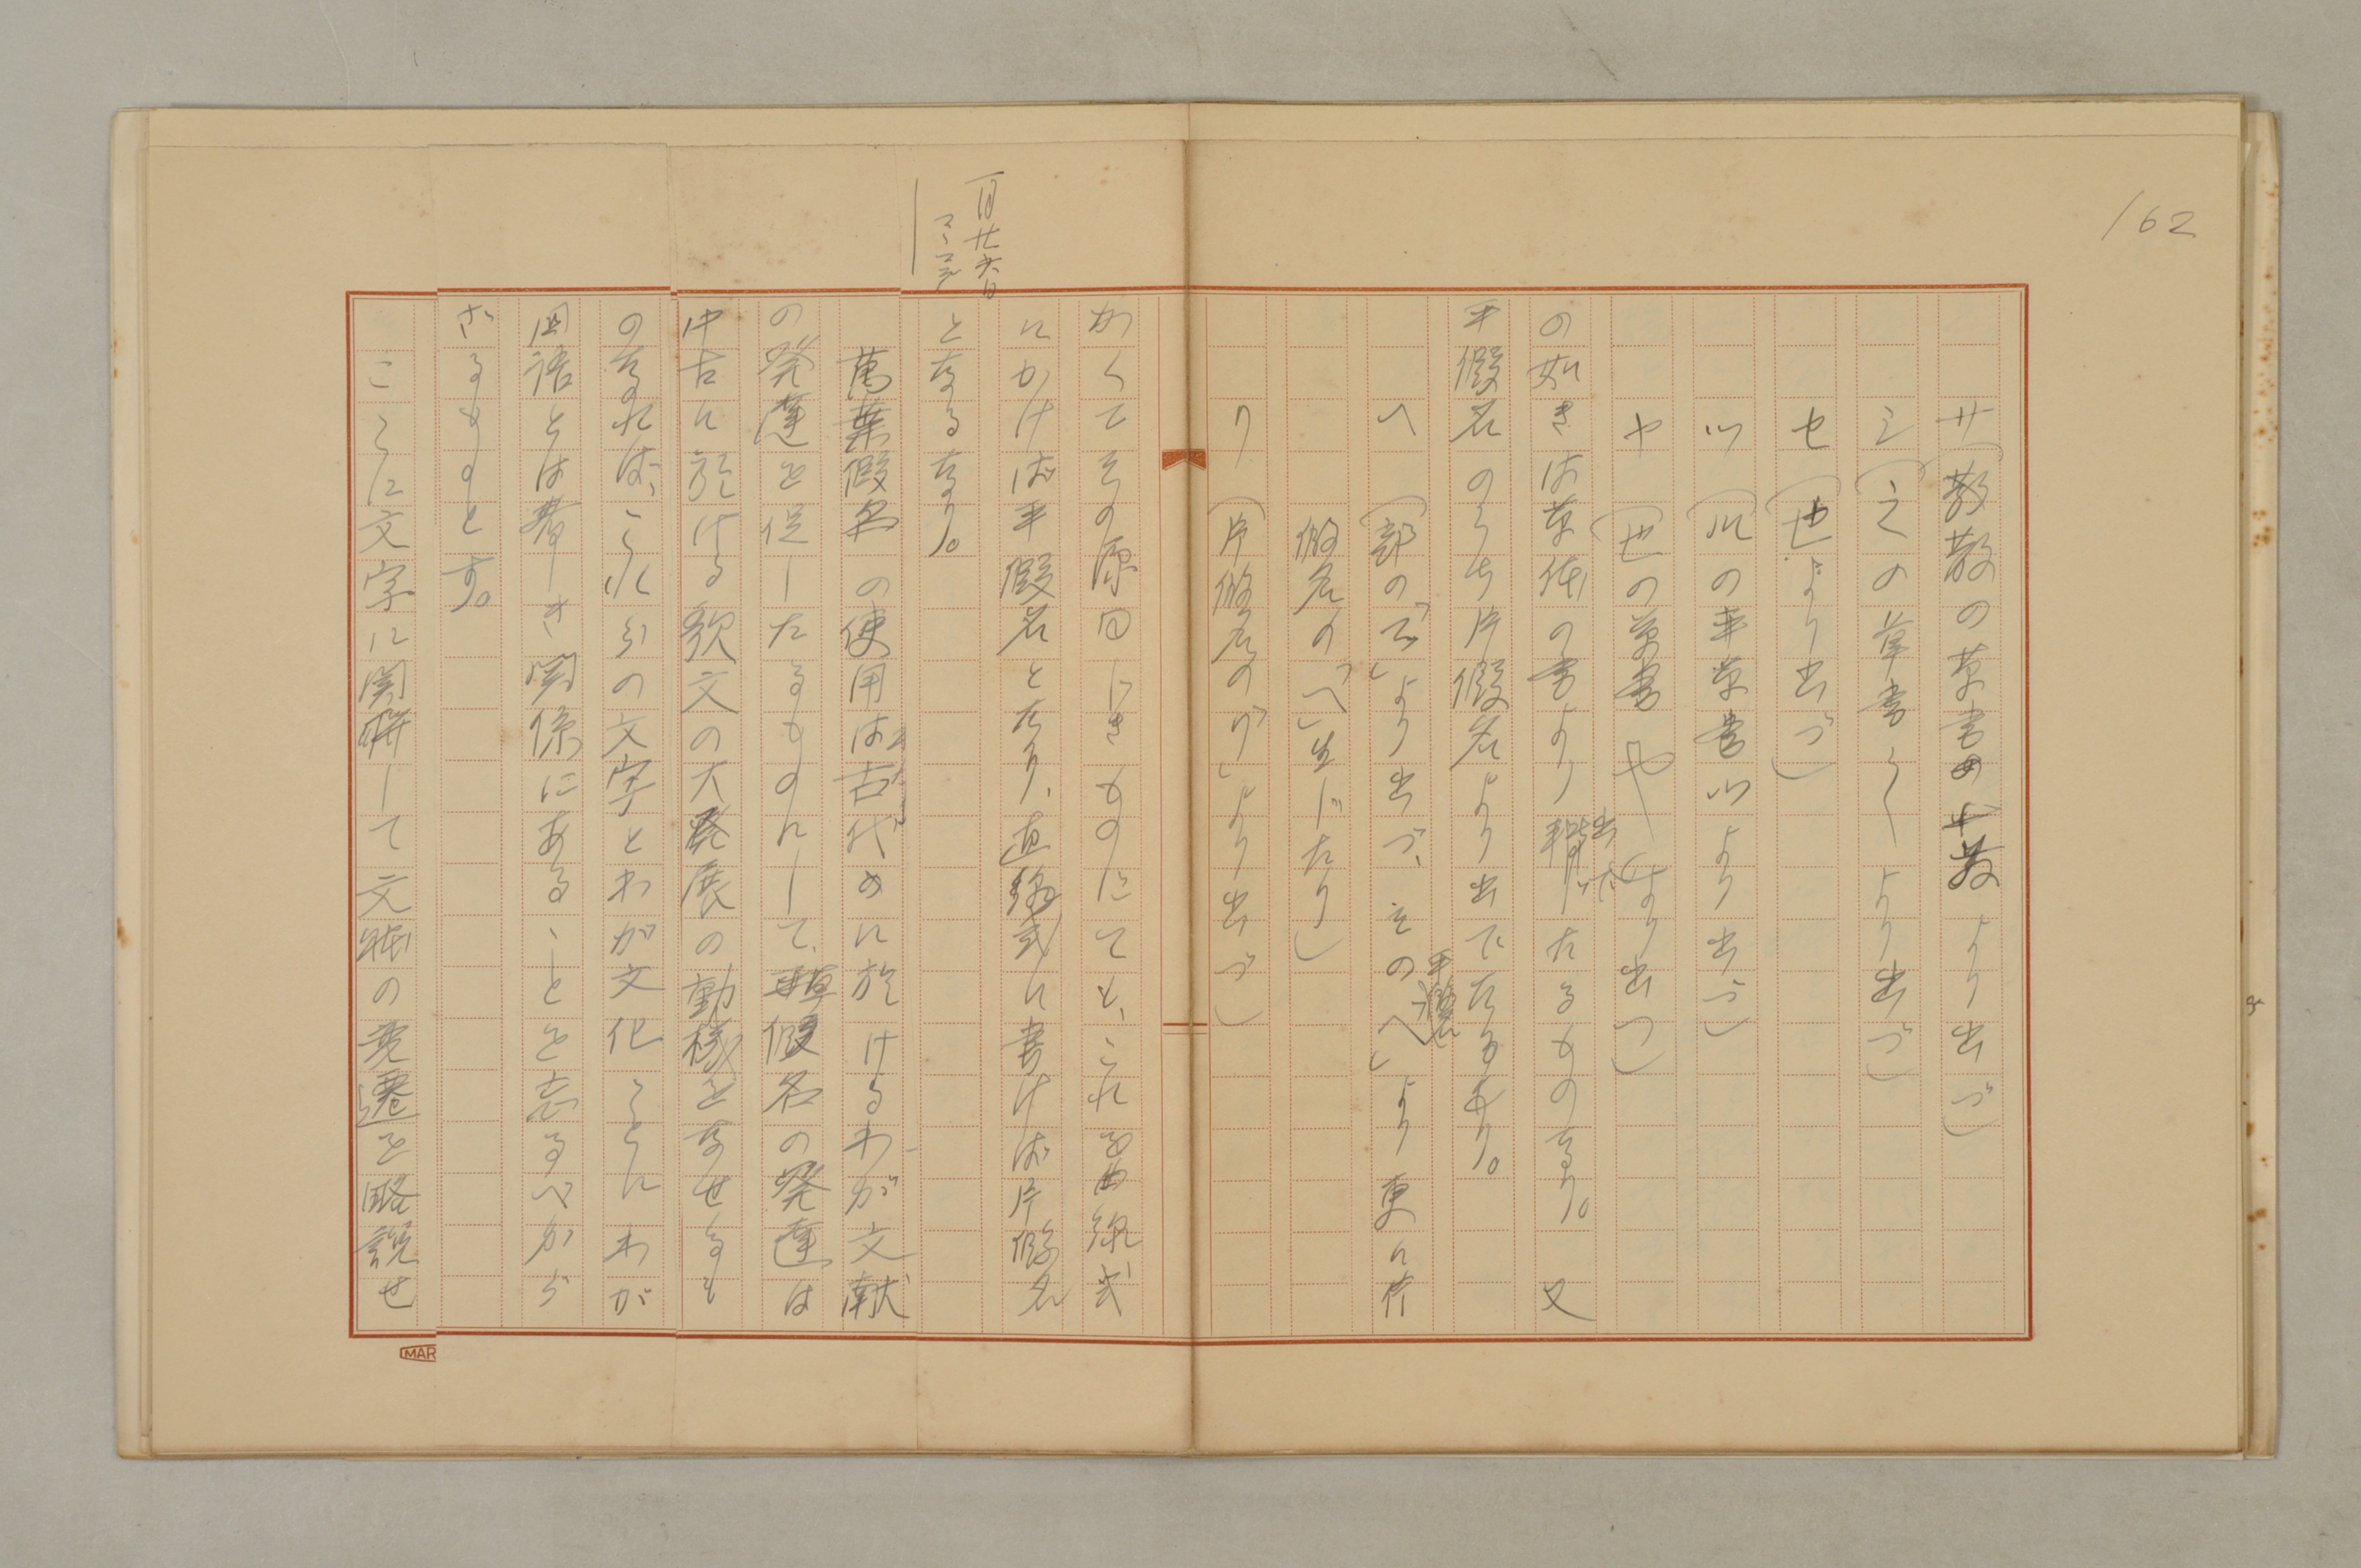 162
サ(散散の草書のサ散より出づ)
シ(之の草書〳〵より出づ)
セ(世より出づ)
ツ(川の草書ツより出づ)
ヤ(也の草書やより出づ)
の如きは草体の書より出でたるものなり。又
平假名のうち片假名より出でたるあり。
へ(部の「マ」より出づ、その「へ」より更に片
假名の「へ」生じたり)
り(片假名の「リ」より出づ)
かくてその原因にきものにても、これを曲線式
にかけば平假名となり、直線式に書けば片假名
となるなり。
一月廿六日
ココマデ
萬葉假名の使用は古代に於けるわが文献
の発達を促したるものにして、草假名の発達は
中古に於ける歌文の大発展の動機をなせるも
のなれば、これらの文字とわが文化ことにわが
国語とは著しき関係にあることを忘るべから
ざるものとす。
ここに文字に関聯して文体の変遷を略説せ
MAR